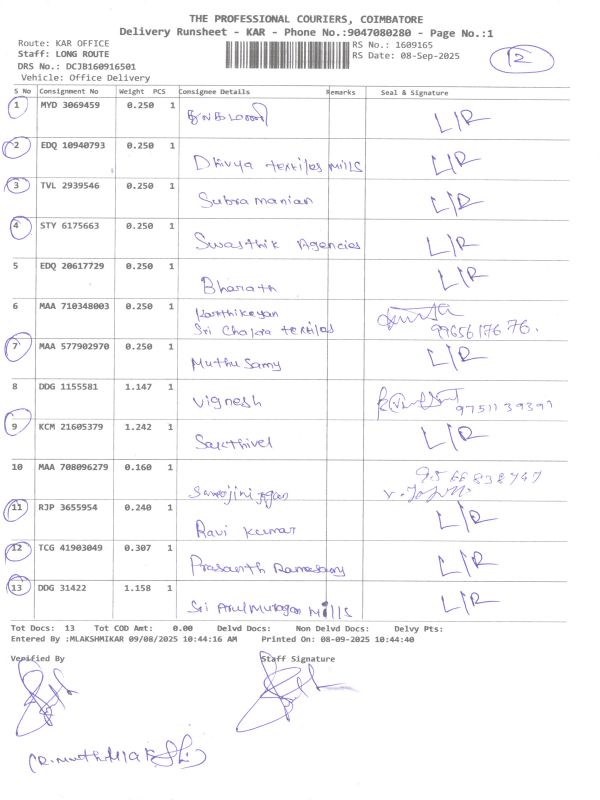 THE PROFESSIONAL COURIERS, COIMBATORE
Delivery Runsheet - KAR - Phone No.:9047080280 - Page No.:1
Route: KAR OFFICE RS No.: 1609165
Staff: LONG ROUTE RS Date: 08-Sep-2025
DRS No.: DCJB160916501
Vehicle: Office Delivery
12
S No Consignment No Weight PCS Consignee Details Remarks Seal & Signature
1 MYD 3069459 0.250 1 L/R
2 EDQ 10940793 0.250 1 Dhivya textiles Mills L/R
3 TVL 2939546 0.250 1 Subramanian L/R
4 STY 6175663 0.250 1 Swasthik Agencies L/R
5 EDQ 20617729 0.250 1 Bharath L/R
6 MAA 710348003 0.250 1 Karthikeyan
Sri Chakra textiles 9965617676.
7 MAA 577902970 0.250 1 Muthu Samy L/R
8 DDG 1155581 1.147 1 Vignesh 9751139399
9 KCM 21605379 1.242 1 Sakthivel L/R
10 MAA 708096279 0.160 1 9566832747
11 RJP 3655954 0.240 1 Ravi Kumar L/R
12 TCG 41903049 0.307 1 Prasanth Ramasamy L/R
13 DDG 31422 1.158 1 Sri Arul Murugan Mills L/R
Tot Docs: 13 Tot COD Amt: 0.00 Delvd Docs: Non Delvd Docs: Delvy Pts:
Entered By :MLAKSHMIKAR 09/08/2025 10:44:16 AM Printed On: 08-09-2025 10:44:40
Verified By Staff Signature